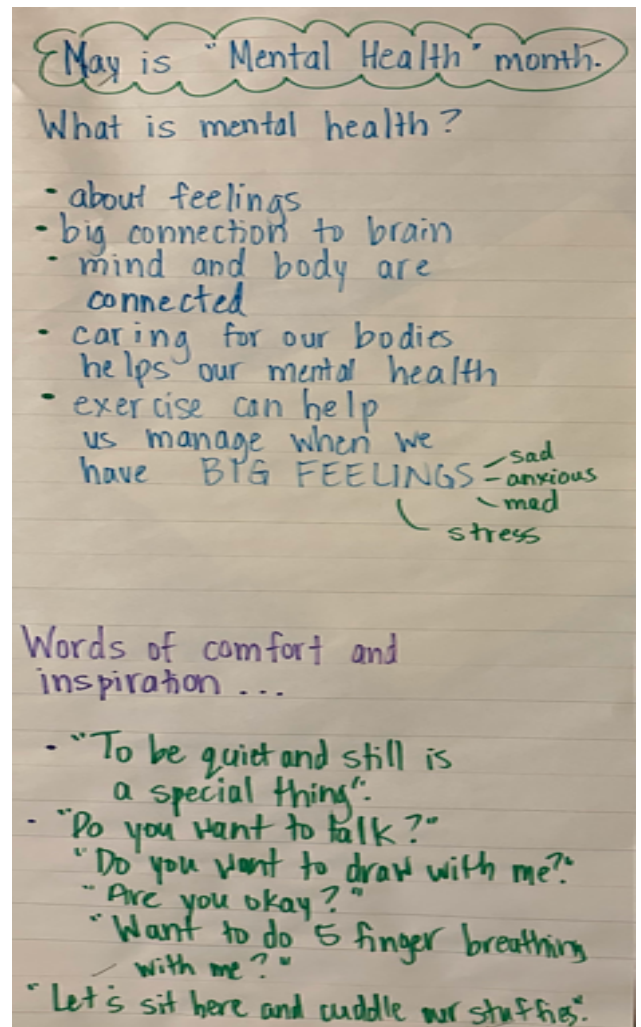 May is "Mental Health" month.
What is mental health?
• about feelings
• big connection to brain
• mind and body are
connected
• caring for our bodies
helps our mental health
• exercise can help
us manage when we
have BIG FEELINGS - sad
- anxious
- mad
stress
Words of comfort and
inspiration ...
• "To be quiet and still is
a special thing".
• "Do you want to talk?"
"Do you want to draw with me?"
"Are you okay?"
"Want to do 5 finger breathing
with me?"
"Let's sit here and cuddle our stuffies".